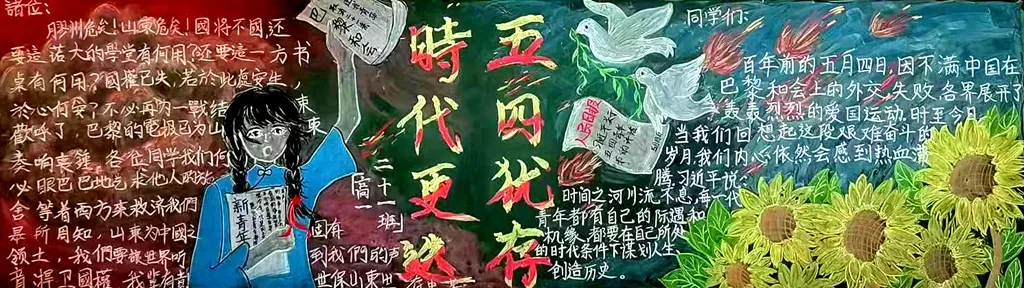 諸位：
膠州危矣！山東危矣！國將不國，还
要這落大的學堂有何用？还要這一方书
桌有何用？國權已失，若於此處寄生，
於心何安？不必再为一戰結束
歡呼了，巴黎的電报已为山東
奏响哀鐘，各位同学我们何
必眼巴巴地乞求他人的
舍，等着西方來救济我們
衆所周知，山東为中國之
领土，我們要讓世界听 到我們的声
音，捍卫國權，我輩有 世保山東
固有
巴黎和会
新青年
高二十一班
時代更迭
五四犹存
人民日报
同学们：
百年前的五月四日，因不满中国在
巴黎和会上的外交失败，各界展开了
轰轰烈烈的爱国运动。时至今日，
当我们回想起这段艰难奋斗的
岁月，我们内心依然会感到热血沸
腾。习近平说：
时间之河川流不息，每一代
青年都有自己的际遇和
机缘，都要在自己所处
的时代条件下谋划人生、
创造历史。